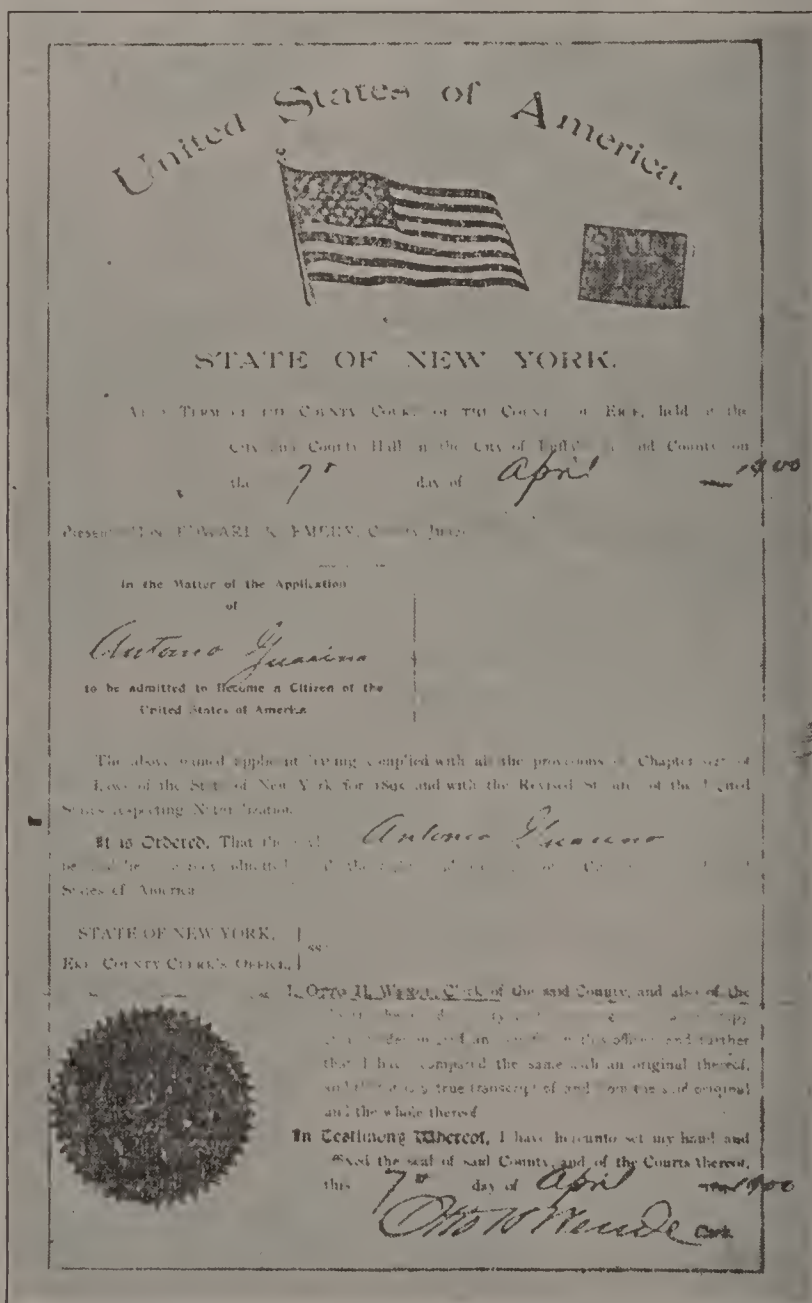 United States of America.
STATE OF NEW YORK.
At a Term of the County Court of the County of Erie, held at the
City and County Hall in the City of Buffalo in said County on
the 7" day of April 1900
Present Hon. EDWARD K. EMERY, County Judge
In the Matter of the Application
of
Antonio
to be admitted to Become a Citizen of the
United States of America
The above named applicant having complied with all the provisions of Chapter of
Laws of the State of New York for 1895 and with the Revised Statutes of the United
States respecting Naturalization
It is Ordered, That the said Antonio Guarino
be and he
States of America
STATE OF NEW YORK,
ss:
ERIE COUNTY CLERK'S OFFICE,
I, Otto H. Wende, Clerk of the said County, and also of the
this office, and further
that I have compared the same with an original thereof,
and that it is a true transcript of and from the said original
and the whole thereof
In Testimony Whereof, I have hereunto set my hand and
affixed the seal of said County, and of the Courts thereof,
this 7" day of April 1900
Otto H Wende Clerk